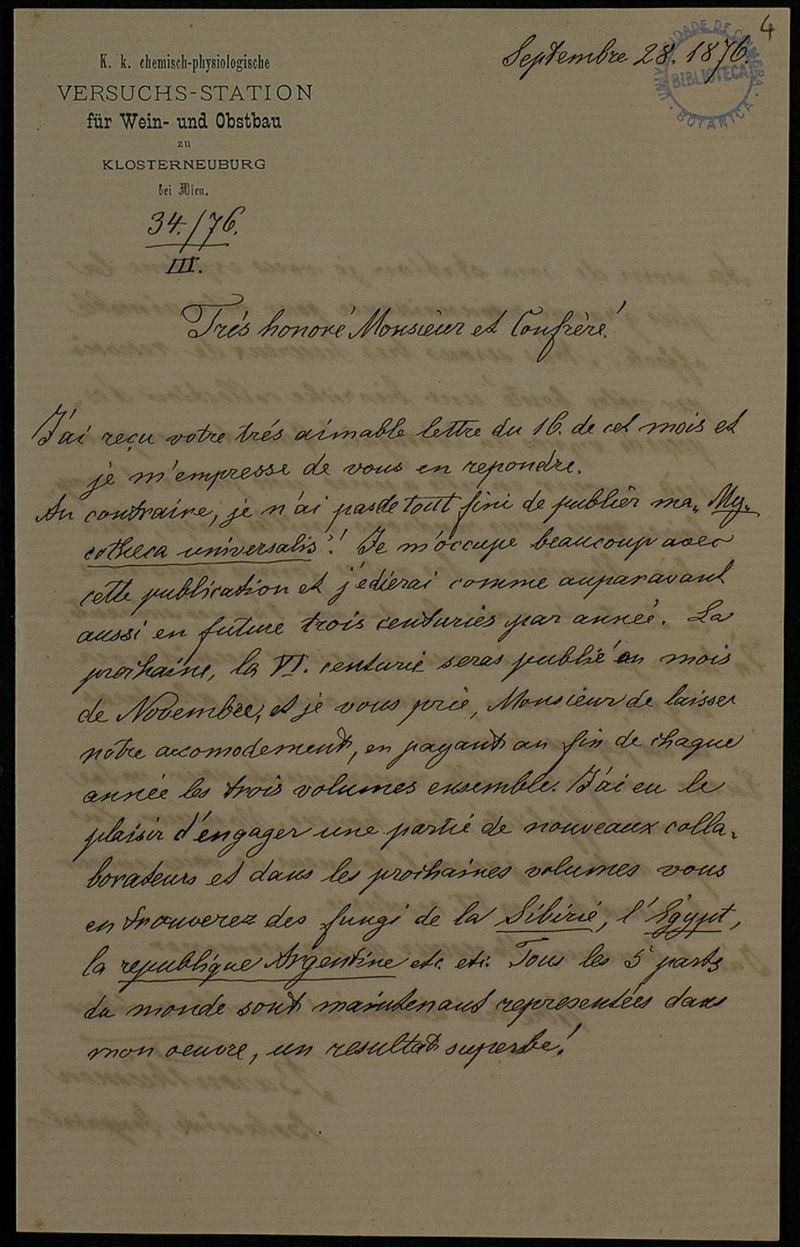 4
Septembre 28. 1876.
UNIVERSIDADE DE COIMBRA
BIBLIOTECA
BOTANICA
K. k. chemisch-physiologische
VERSUCHS-STATION
für Wein- und Obstbau
zu
KLOSTERNEUBURG
bei Wien.
34./76.
III.
Trés honoré Monsieur et Confrère!
J'ai reçu votre trés aimable lettre du 16. de cet mois et
je m'empresse de vous en repondre.
Au contraire, je n'ai pas de tout fini de publier ma „My-
cotheca universalis"! Je m'occupe beaucoup avec
cette publication et j'edierai comme auparavant
aussi en future trois centuries par année. La
prochaine, la VI. centurie seras publié en mois
de Novembre, et je vous prie, Monsieur de laisser
notre accomodement, en payant au fin de chaque
année les trois volumes ensemble. J'ai eu le
plaisir d'engager une partie de nouveaux colla-
borateurs et dans les prochaines volumes vous
en trouverez des fungi de la Sibirie, l'Egypt,
la republique Argentine etc. etc. Tous les 5 parts
du monde sont maintenant representées dans
mon oeuvre, un resultat superbe!